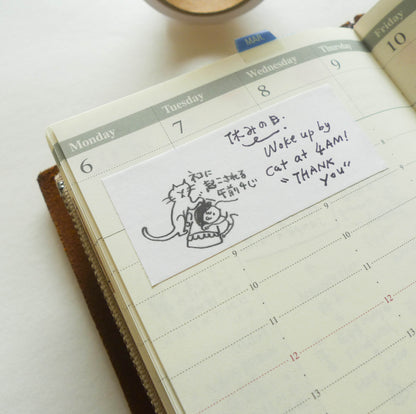 MAR
Monday
6
Tuesday
7
Wednesday
8
Thursday
9
Friday
10
休みの日.
Woke up by
cat at 4AM!
"THANK
YOU"
ネコに
起こされる
午前4じ
9
9
10
10
11
11
12
12
13
13